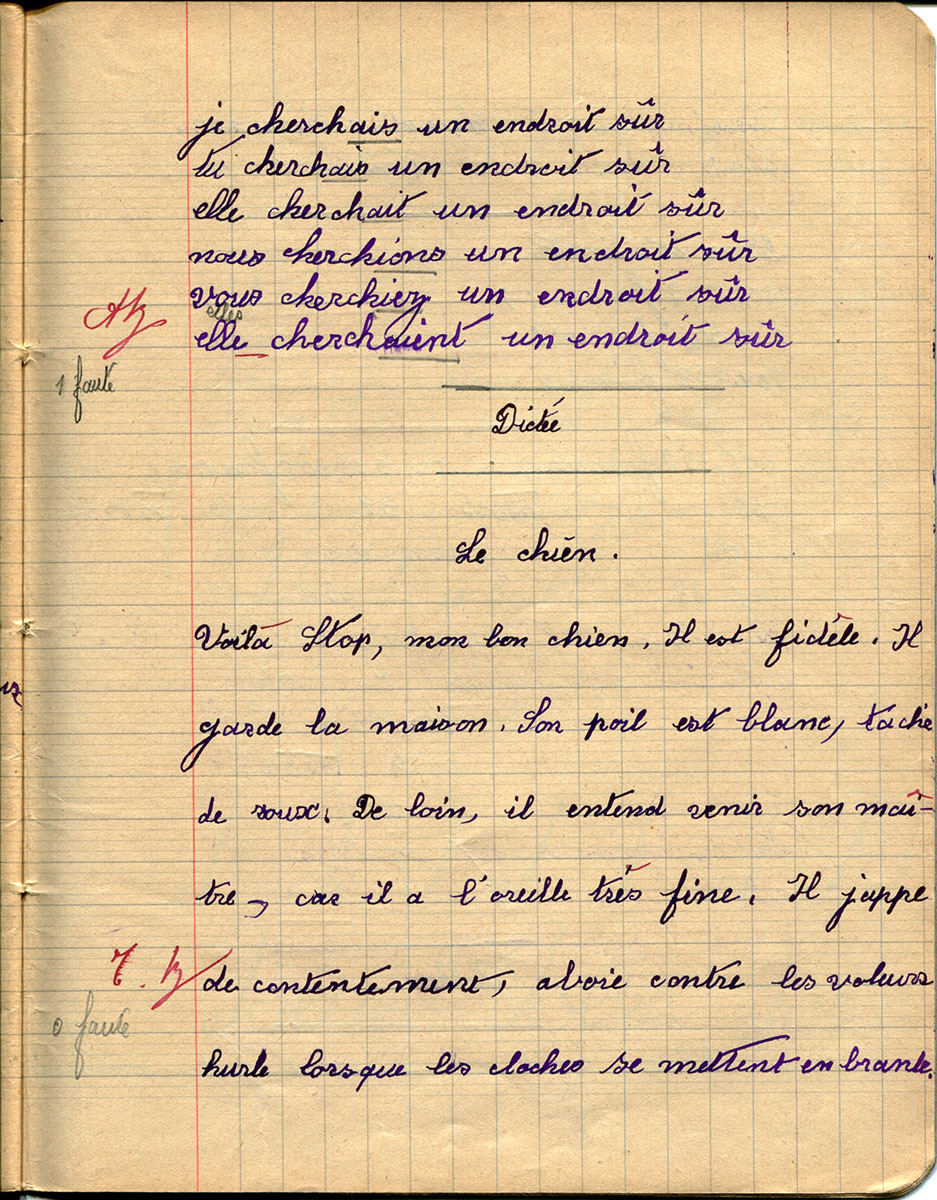 je cherchais un endroit sûr
tu cherchais un endroit sûr
elle cherchait un endroit sûr
nous cherchions un endroit sûr
vous cherchiez un endroit sûr
elles
elle cherchaient un endroit sûr
1 faute
Dictée
Le chien.
Voilà Stop, mon bon chien. Il est fidèle. Il
garde la maison. Son poil est blanc, taché
de roux. De loin, il entend venir son maî-
tre, car il a l'oreille très fine. Il jappe
T. B
de contentement, aboie contre les voleurs
0 faute
hurle lorsque les cloches se mettent en branle.